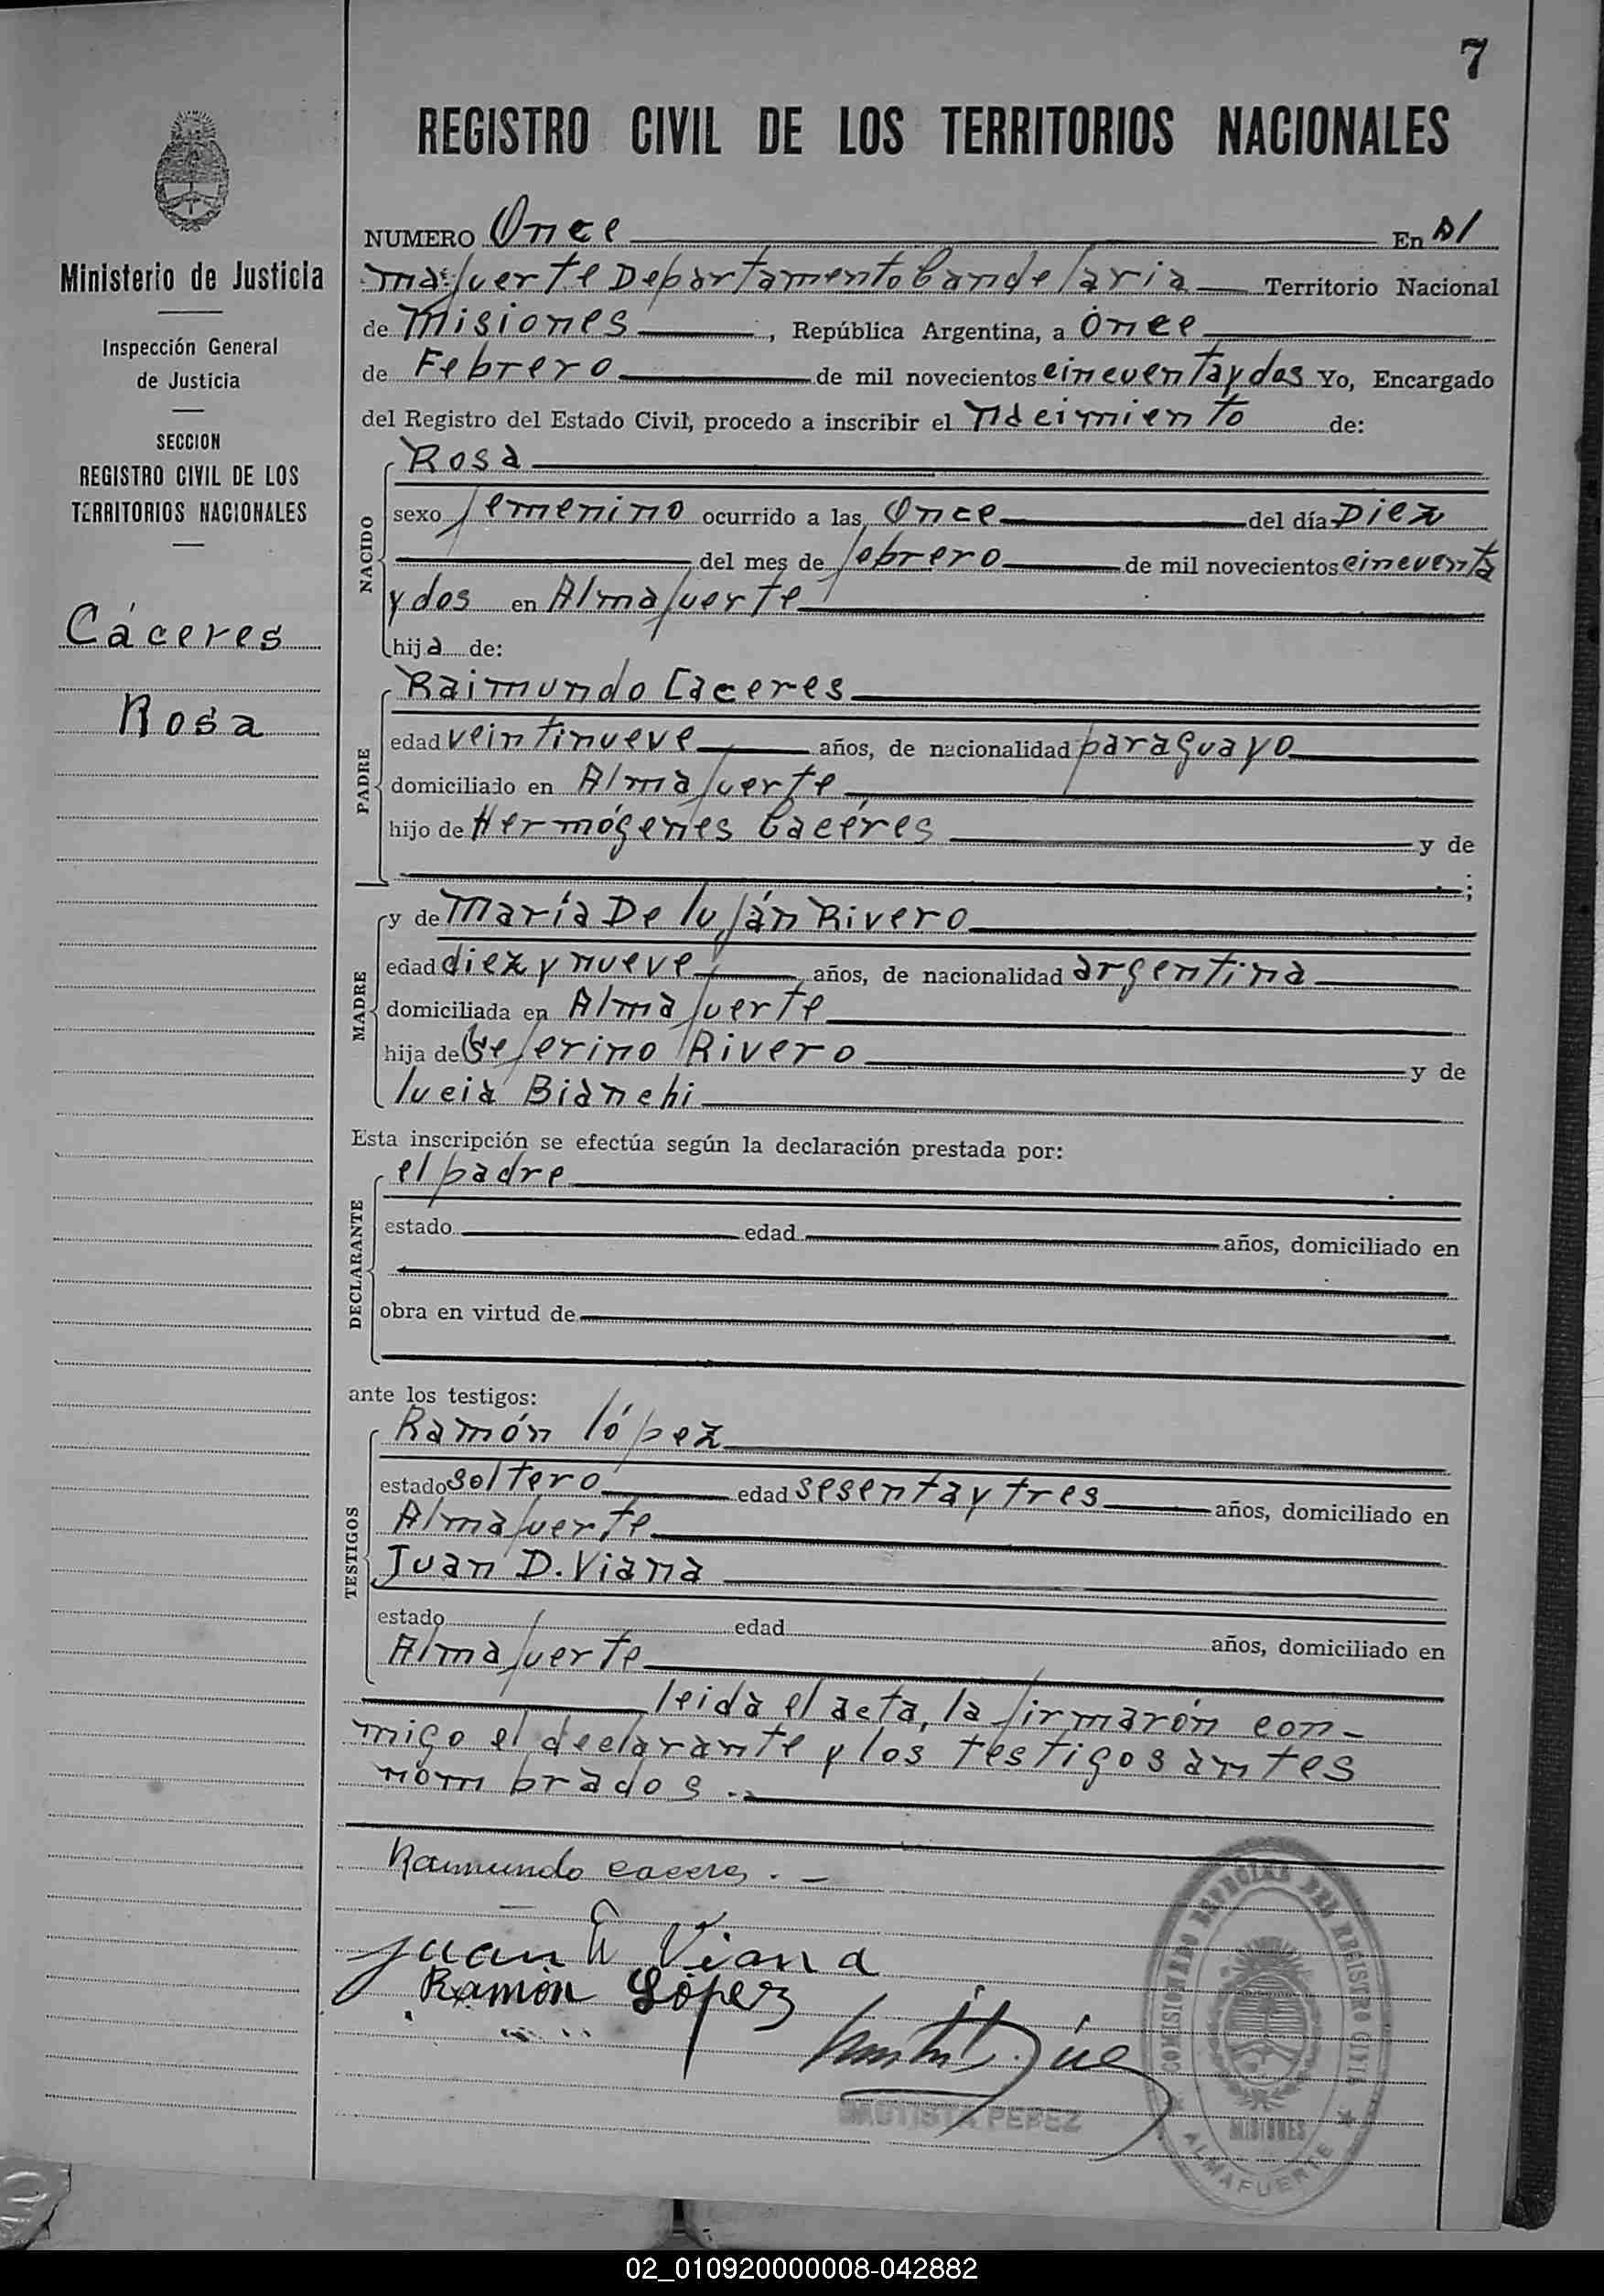 7
REGISTRO CIVIL DE LOS TERRITORIOS NACIONALES
Ministerio de Justicia
Inspección General
de Justicia
SECCION
REGISTRO CIVIL DE LOS
TERRITORIOS NACIONALES
Cáceres
Rosa
NUMERO Once En Al
mafuerte Departamento Candelaria Territorio Nacional
de Misiones, República Argentina, a Once
de Febrero de mil novecientos cincuenta y dos Yo, Encargado
del Registro del Estado Civil, procedo a inscribir el Nacimiento de:
NACIDO
Rosa
sexo femenino ocurrido a las Once del día Diez
del mes de febrero de mil novecientos cincuenta
y dos en Almafuerte
hija de:
PADRE
Raimundo Caceres
edad veintinueve años, de nacionalidad paraguayo
domiciliado en Almafuerte
hijo de Hermógenes Caceres y de
;
MADRE
y de María De luján Rivero
edad diez y nueve años, de nacionalidad argentina
domiciliada en Almafuerte
hija de Ceferino Rivero y de
lucia Bianchi
Esta inscripción se efectúa según la declaración prestada por:
DECLARANTE
el padre
estado edad años, domiciliado en
obra en virtud de
ante los testigos:
TESTIGOS
Ramón lópez
estado soltero edad sesenta y tres años, domiciliado en
Almafuerte
Juan D. Viana
estado edad años, domiciliado en
Almafuerte
leida el acta, la firmarón con-
migo el declarante y los testigos antes
nombrados.-
Raimundo caceres.-
Juan D Viana
Ramón López
BAUTISTA PEREZ
COMISIONADO ESPECIAL DEL REGISTRO CIVIL
MISIONES
ALMAFUERTE
02_010920000008-042882